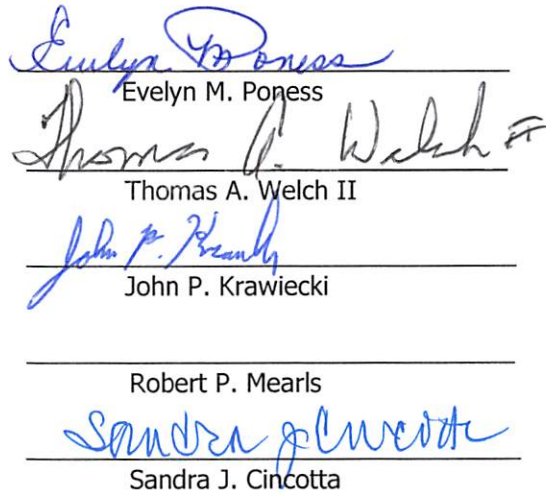 Evelyn M Poness
Evelyn M. Poness
Thomas A. Welch II
Thomas A. Welch II
John P. Krawiecki
John P. Krawiecki
Robert P. Mearls
Sandra J Cincotta
Sandra J. Cincotta